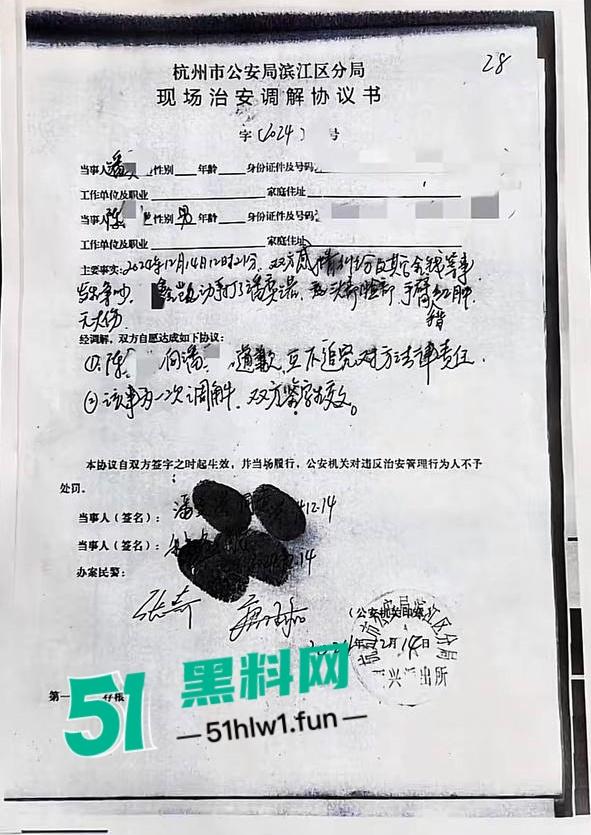 28
杭州市公安局滨江区分局
现场治安调解协议书
字〔2024〕 号
当事人潘 性别 年龄 身份证件及号码
工作单位及职业 家庭住址
当事人陈 性别男年龄 身份证件及号码:
工作单位及职业 家庭住址
主要事实:2024年12月14日12时21分,双方感情纠纷及其它金钱等事
手臂红肿
无大伤.
经调解,双方自愿达成如下协议:
①.陈 向潘 道歉,互不追究对方法律责任.
②该事为一次调解,双方签字生效。
本协议自双方签字之时起生效,并当场履行,公安机关对违反治安管理行为人不予
处罚。
当事人(签名): 潘 12.14
当事人(签名): 12.14
办案民警:
张奇
(公安机关印章)
2024年12月14日
滨江区分局
派出所
第一 存根
51 黑料网
—51hlw1.fun—